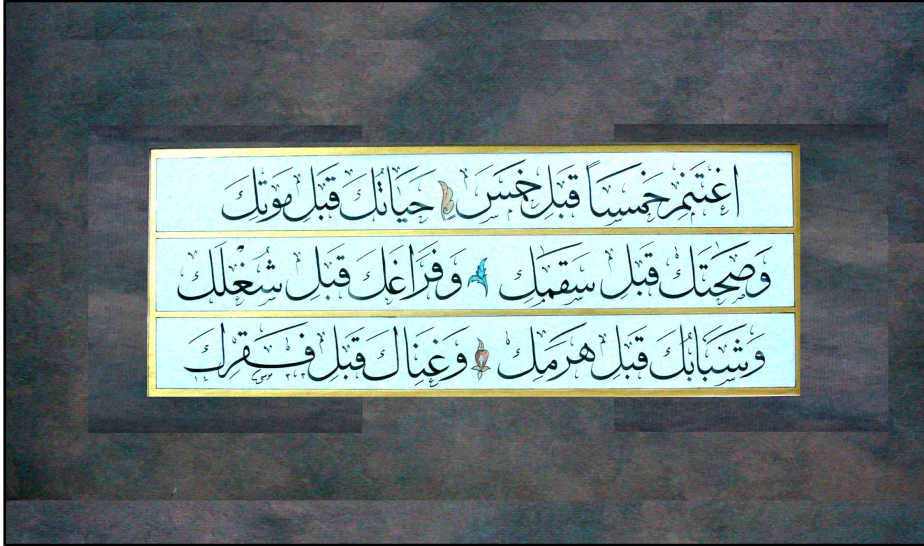 اغتنم خمساً قبل خمس حَيَاتَكَ قَبل مَوتِكَ
وَصِحَتَك قَبل سَقَمِك وَفَرَاغَك قَبل شُغْلَك
وَشَبَابَك قَبل هَرَمِك وَغِنَاك قَبل فَقرِك